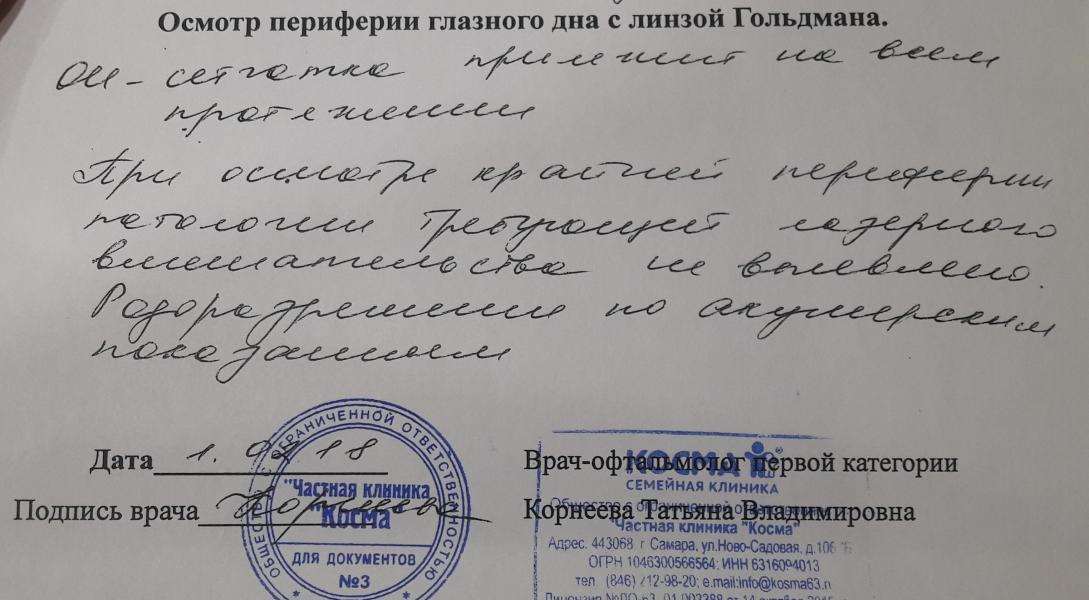 Осмотр периферии глазного дна с линзой Гольдмана.
ОИ - сетчатка прилежит на всем
протяжении
При осмотре крайней периферии
патологии требующей лазерного
вмешательства не выевлено.
Родоразрешение по акушерским
показаниям
Дата 1. 18
Подпись врача
ОБЩЕСТВО С ОГРАНИЧЕННОЙ ОТВЕТСТВЕННОСТЬЮ
"Частная клиника
"Косма
ДЛЯ ДОКУМЕНТОВ
№3
КОСМА
Врач-офтальмолог первой категории
СЕМЕЙНАЯ КЛИНИКА
Корнеева Татьяна Владимировна
Общество с ограниченной
"Частная клиника "Косма"
Адрес. 443068 г Самара, ул.Ново-Садовая, д.106
ОГРН 1046300566564; ИНН 6316094013
тел. (846) 212-98-20; e.mail:info@kosma63.r